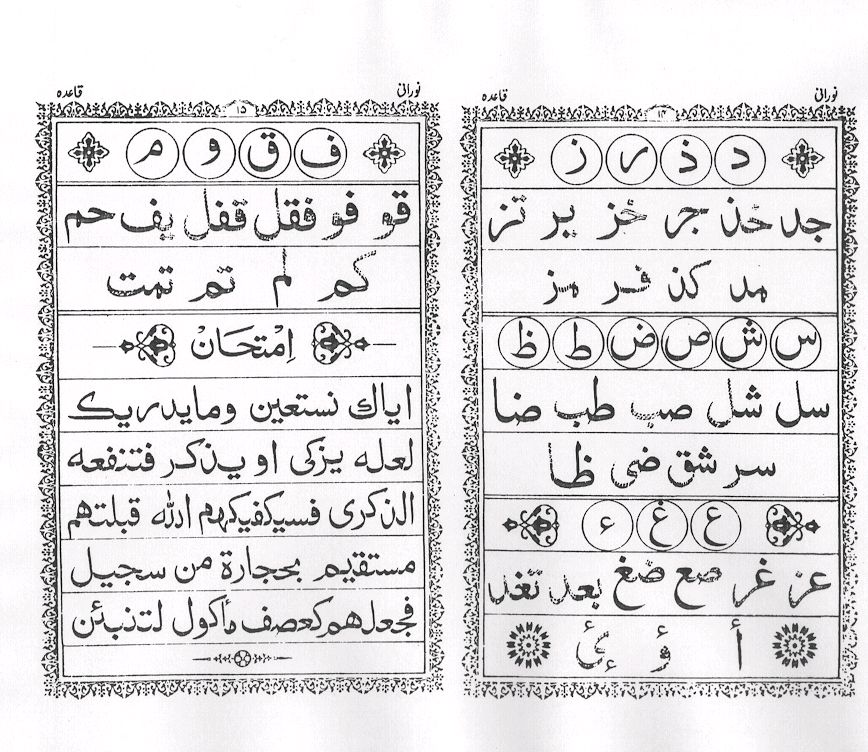 نورانی قاعده
١٤
د ذ ر ز
جد خذ جر خز یر تز
مد کذ فر مز
س ش ص ض ط ظ
سل شل صب طب ضا
سر شق ضی ظا
ع غ ء
عز غر صع ضغ بعد تغد
أ ؤ ئ ء
نورانی قاعده
١٥
ف ق و م
قو فو فقل قفل یف حم
کم لم تم تمت
اِمْتحَانْ
ایاك نستعین ومایدریك
لعله یزکی او یذکر فتنفعه
الذکری فسیکفیکهم الله قبلتهم
مستقیم بحجارة من سجیل
فجعلهم کعصف مأکول لتنبئن